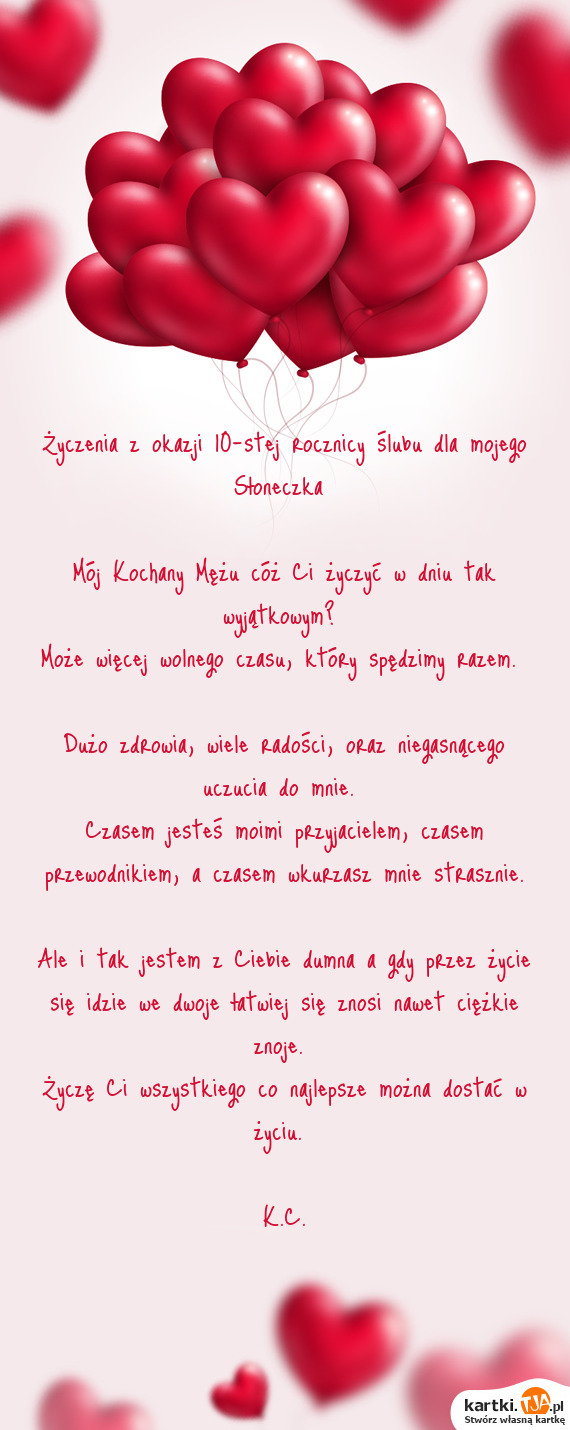 Życzenia z okazji 10-stej rocznicy ślubu dla mojego
Słoneczka
Mój Kochany Mężu cóż Ci życzyć w dniu tak
wyjątkowym?
Może więcej wolnego czasu, który spędzimy razem.
Dużo zdrowia, wiele radości, oraz niegasnącego
uczucia do mnie.
Czasem jesteś moimi przyjacielem, czasem
przewodnikiem, a czasem wkurzasz mnie strasznie.
Ale i tak jestem z Ciebie dumna a gdy przez życie
się idzie we dwoje łatwiej się znosi nawet ciężkie
znoje.
Życzę Ci wszystkiego co najlepsze można dostać w
życiu.
K.C.
kartki.TJA.pl
Stwórz własną kartkę